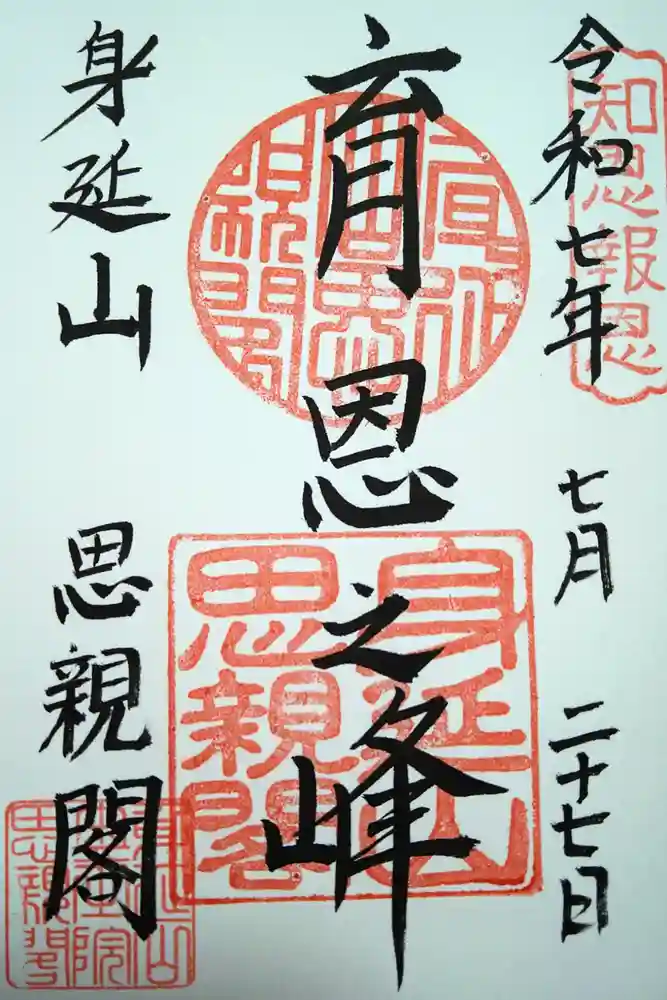 令和七年 七月 二十七日
知恩報恩
育恩之峰
身延山
思親閣
身延山 思親閣